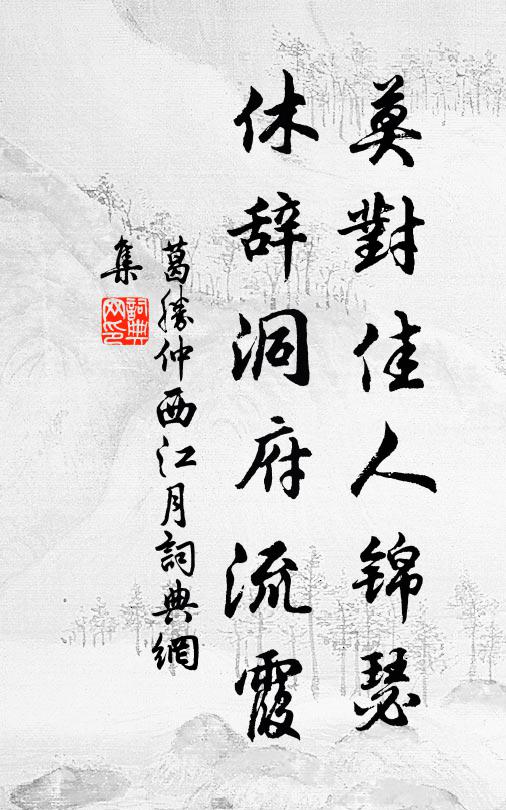 莫對佳人锦瑟
休辞洞府流霞
葛勝仲西江月詞典網
集
詞典网印